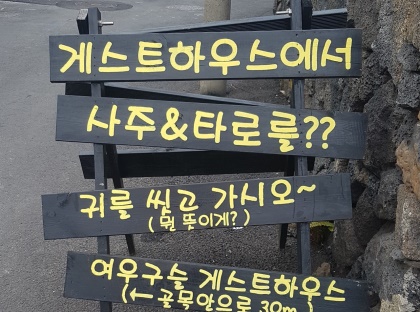 게스트하우스에서
사주&타로를??
귀를 씻고 가시오~
(뭔 뜻이게?)
여우구슬 게스트하우스
(← 골목안으로 30m)